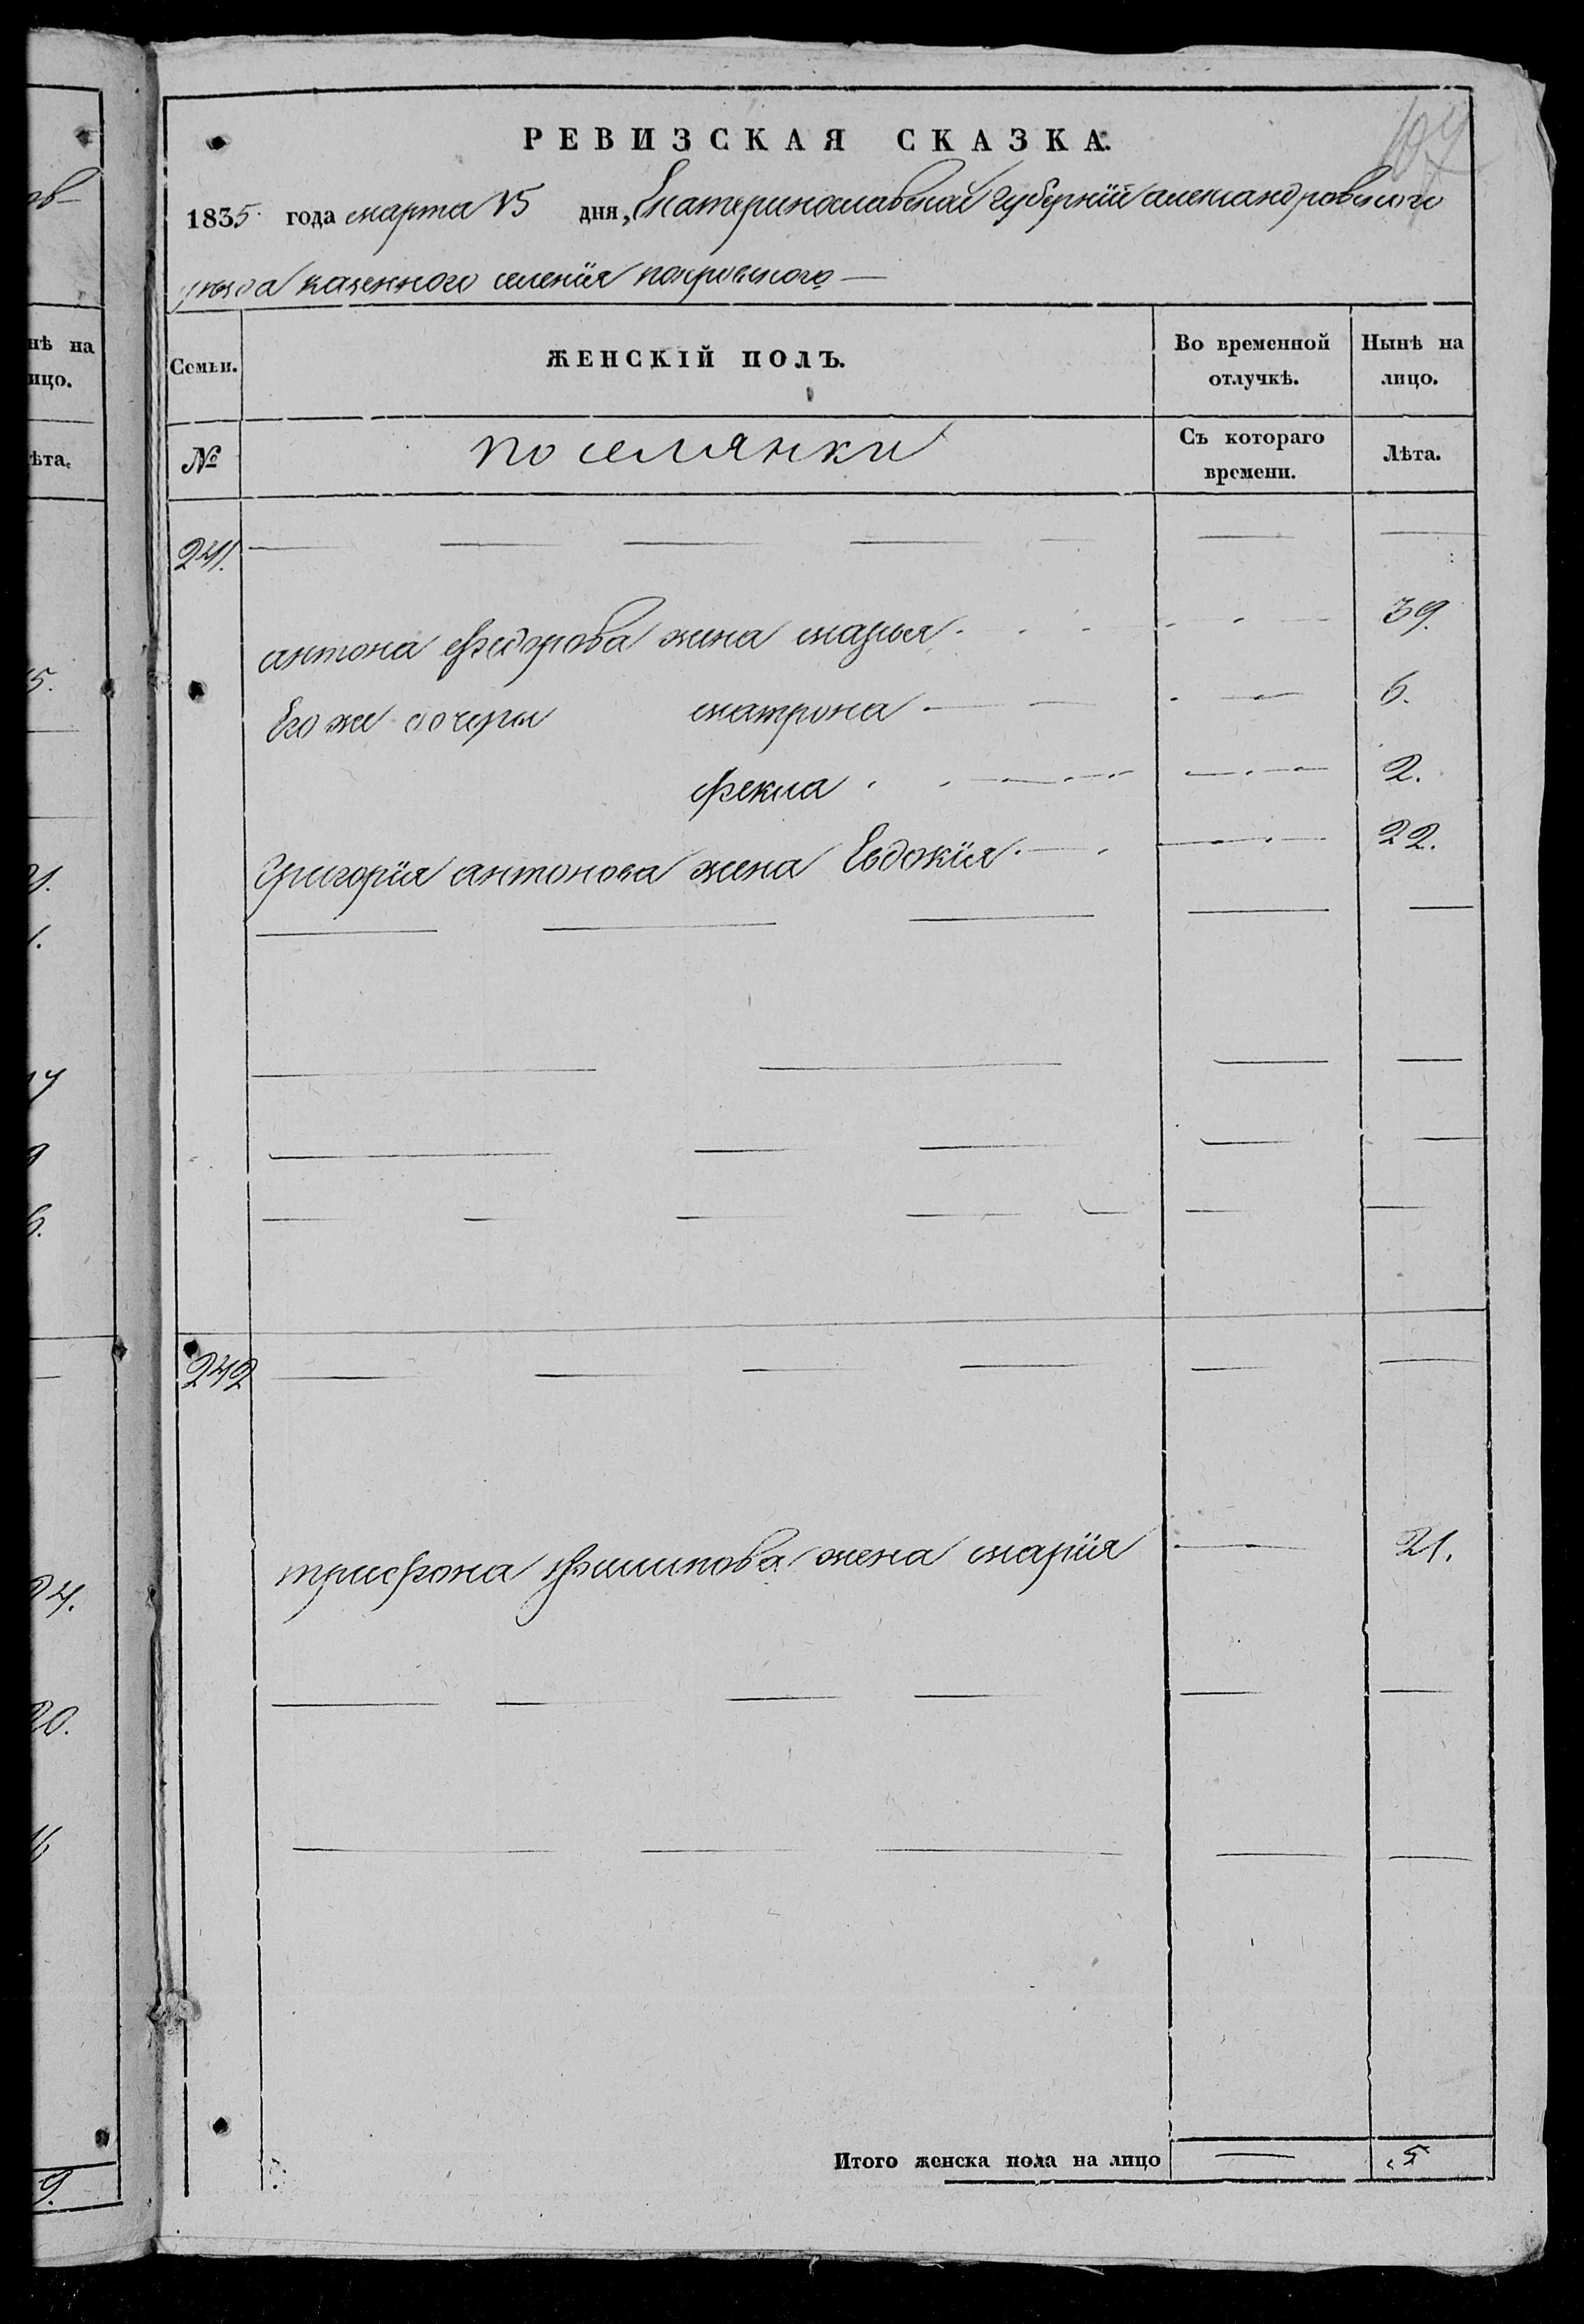 РЕВИЗСКАЯ СКАЗКА.
1835 года марта 15 дня, Екатеринославской губернїи александровского
уезда казенного селенїя покровского
Семьи.
ЖЕНСКІЙ ПОЛЪ.
Во временной отлучкѣ.
Нынѣ на лицо.
№
поселянки
Съ котораго времени.
Лѣта.
241.
антона федорова жена марья 39.
Его же дочери матрона 6.
фекла 2.
Григорїя антонова жена Евдокїя 22.
242
трифона филипова жена марїя 21.
Итого женска пола на лицо 5